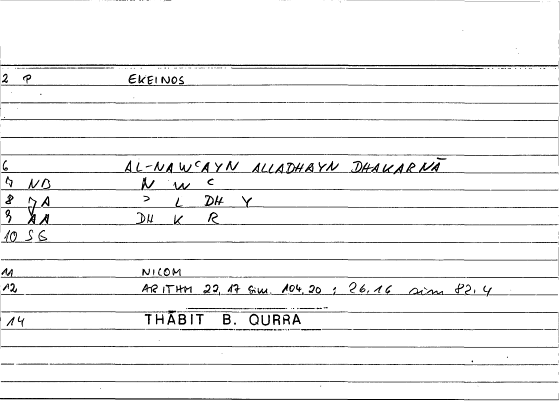 2 P EKEINOS
6 AL-NAWᶜAYN ALLADHAYN DHAKARNĀ
7 NB N W ᶜ
8 JA ʾ L DH Y
9 AA DH K R
10 SG
11 NICOM
12 ARITHM 22,17 sim. 104.20 ; 26,16 sim 82,4
14 THĀBIT B. QURRA